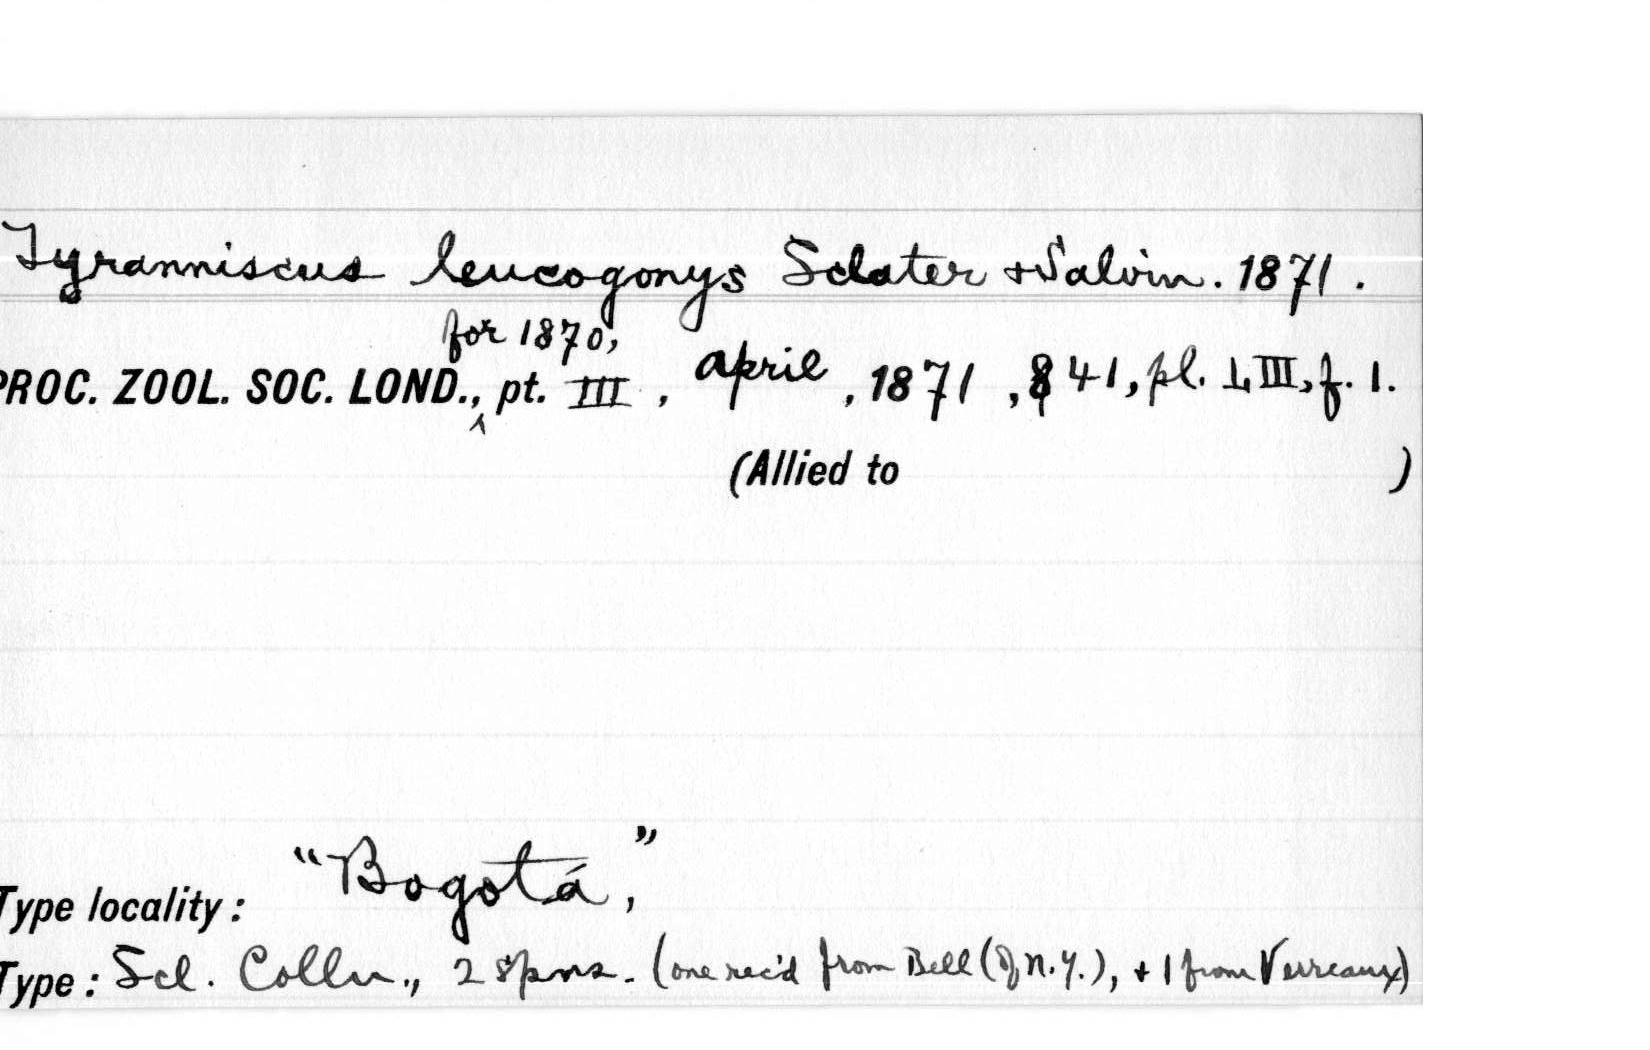 Tyranniscus leucogonys Sclater + Salvin. 1871.
for 1870,
PROC. ZOOL. SOC. LOND., pt. III, april, 1871, 841, pl. LIII, f. 1.
(Allied to )
Type locality: "Bogotá,"
Type: Scl. Colln., 2 spms. (one rec'd from Bell (of N.Y.), + 1 from Verreaux)